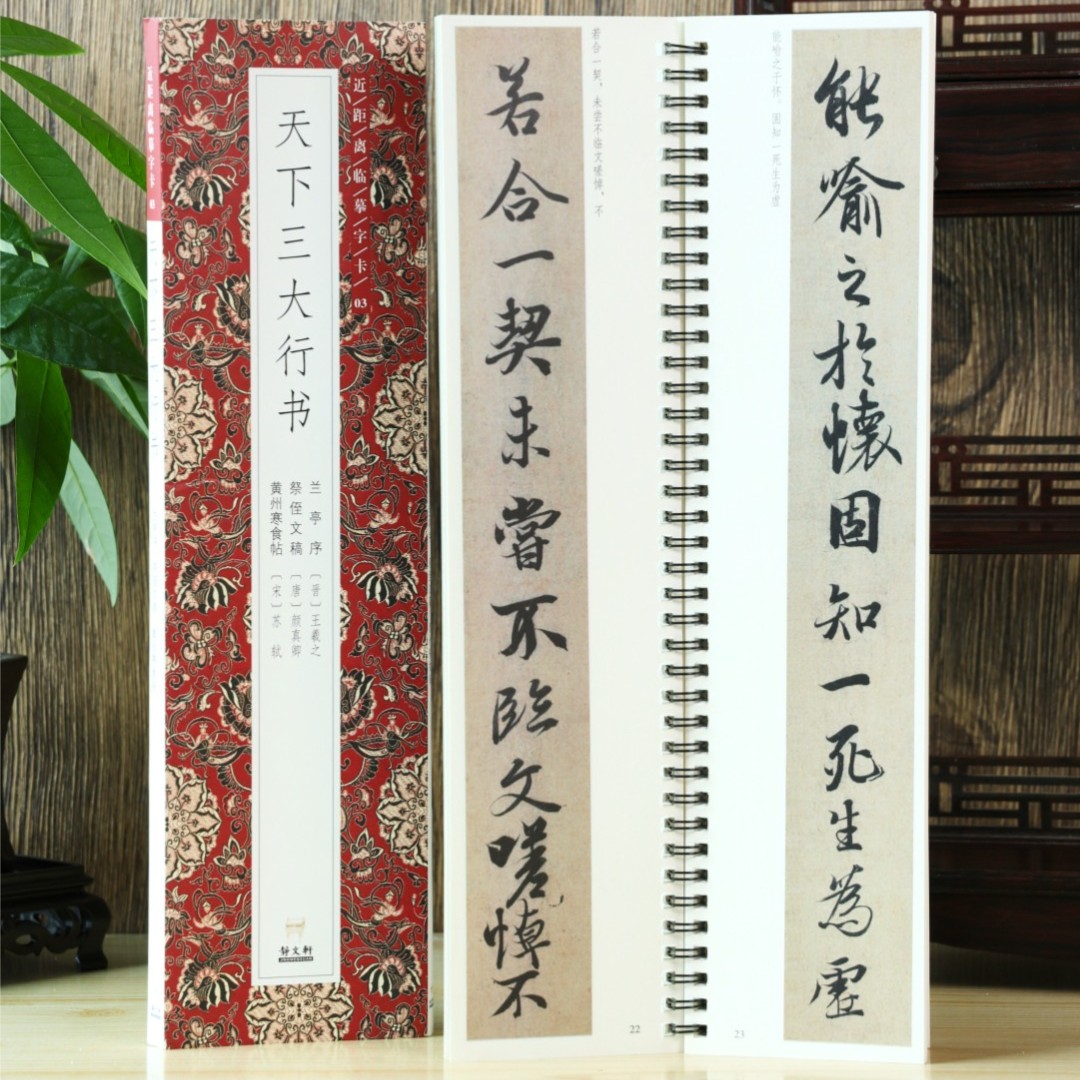 近距离临摹字卡 03
近/距/离/临/摹/字/卡/03
天下三大行书
兰亭序 〔晋〕王羲之
祭侄文稿 〔唐〕颜真卿
黄州寒食帖 〔宋〕苏轼
静文轩
若合一契，未尝不临文嗟悼，不
若合一契未嘗不臨文嗟悼不
22
能喻之于怀。固知一死生为虚
能喻之於懷固知一死生為虛
23